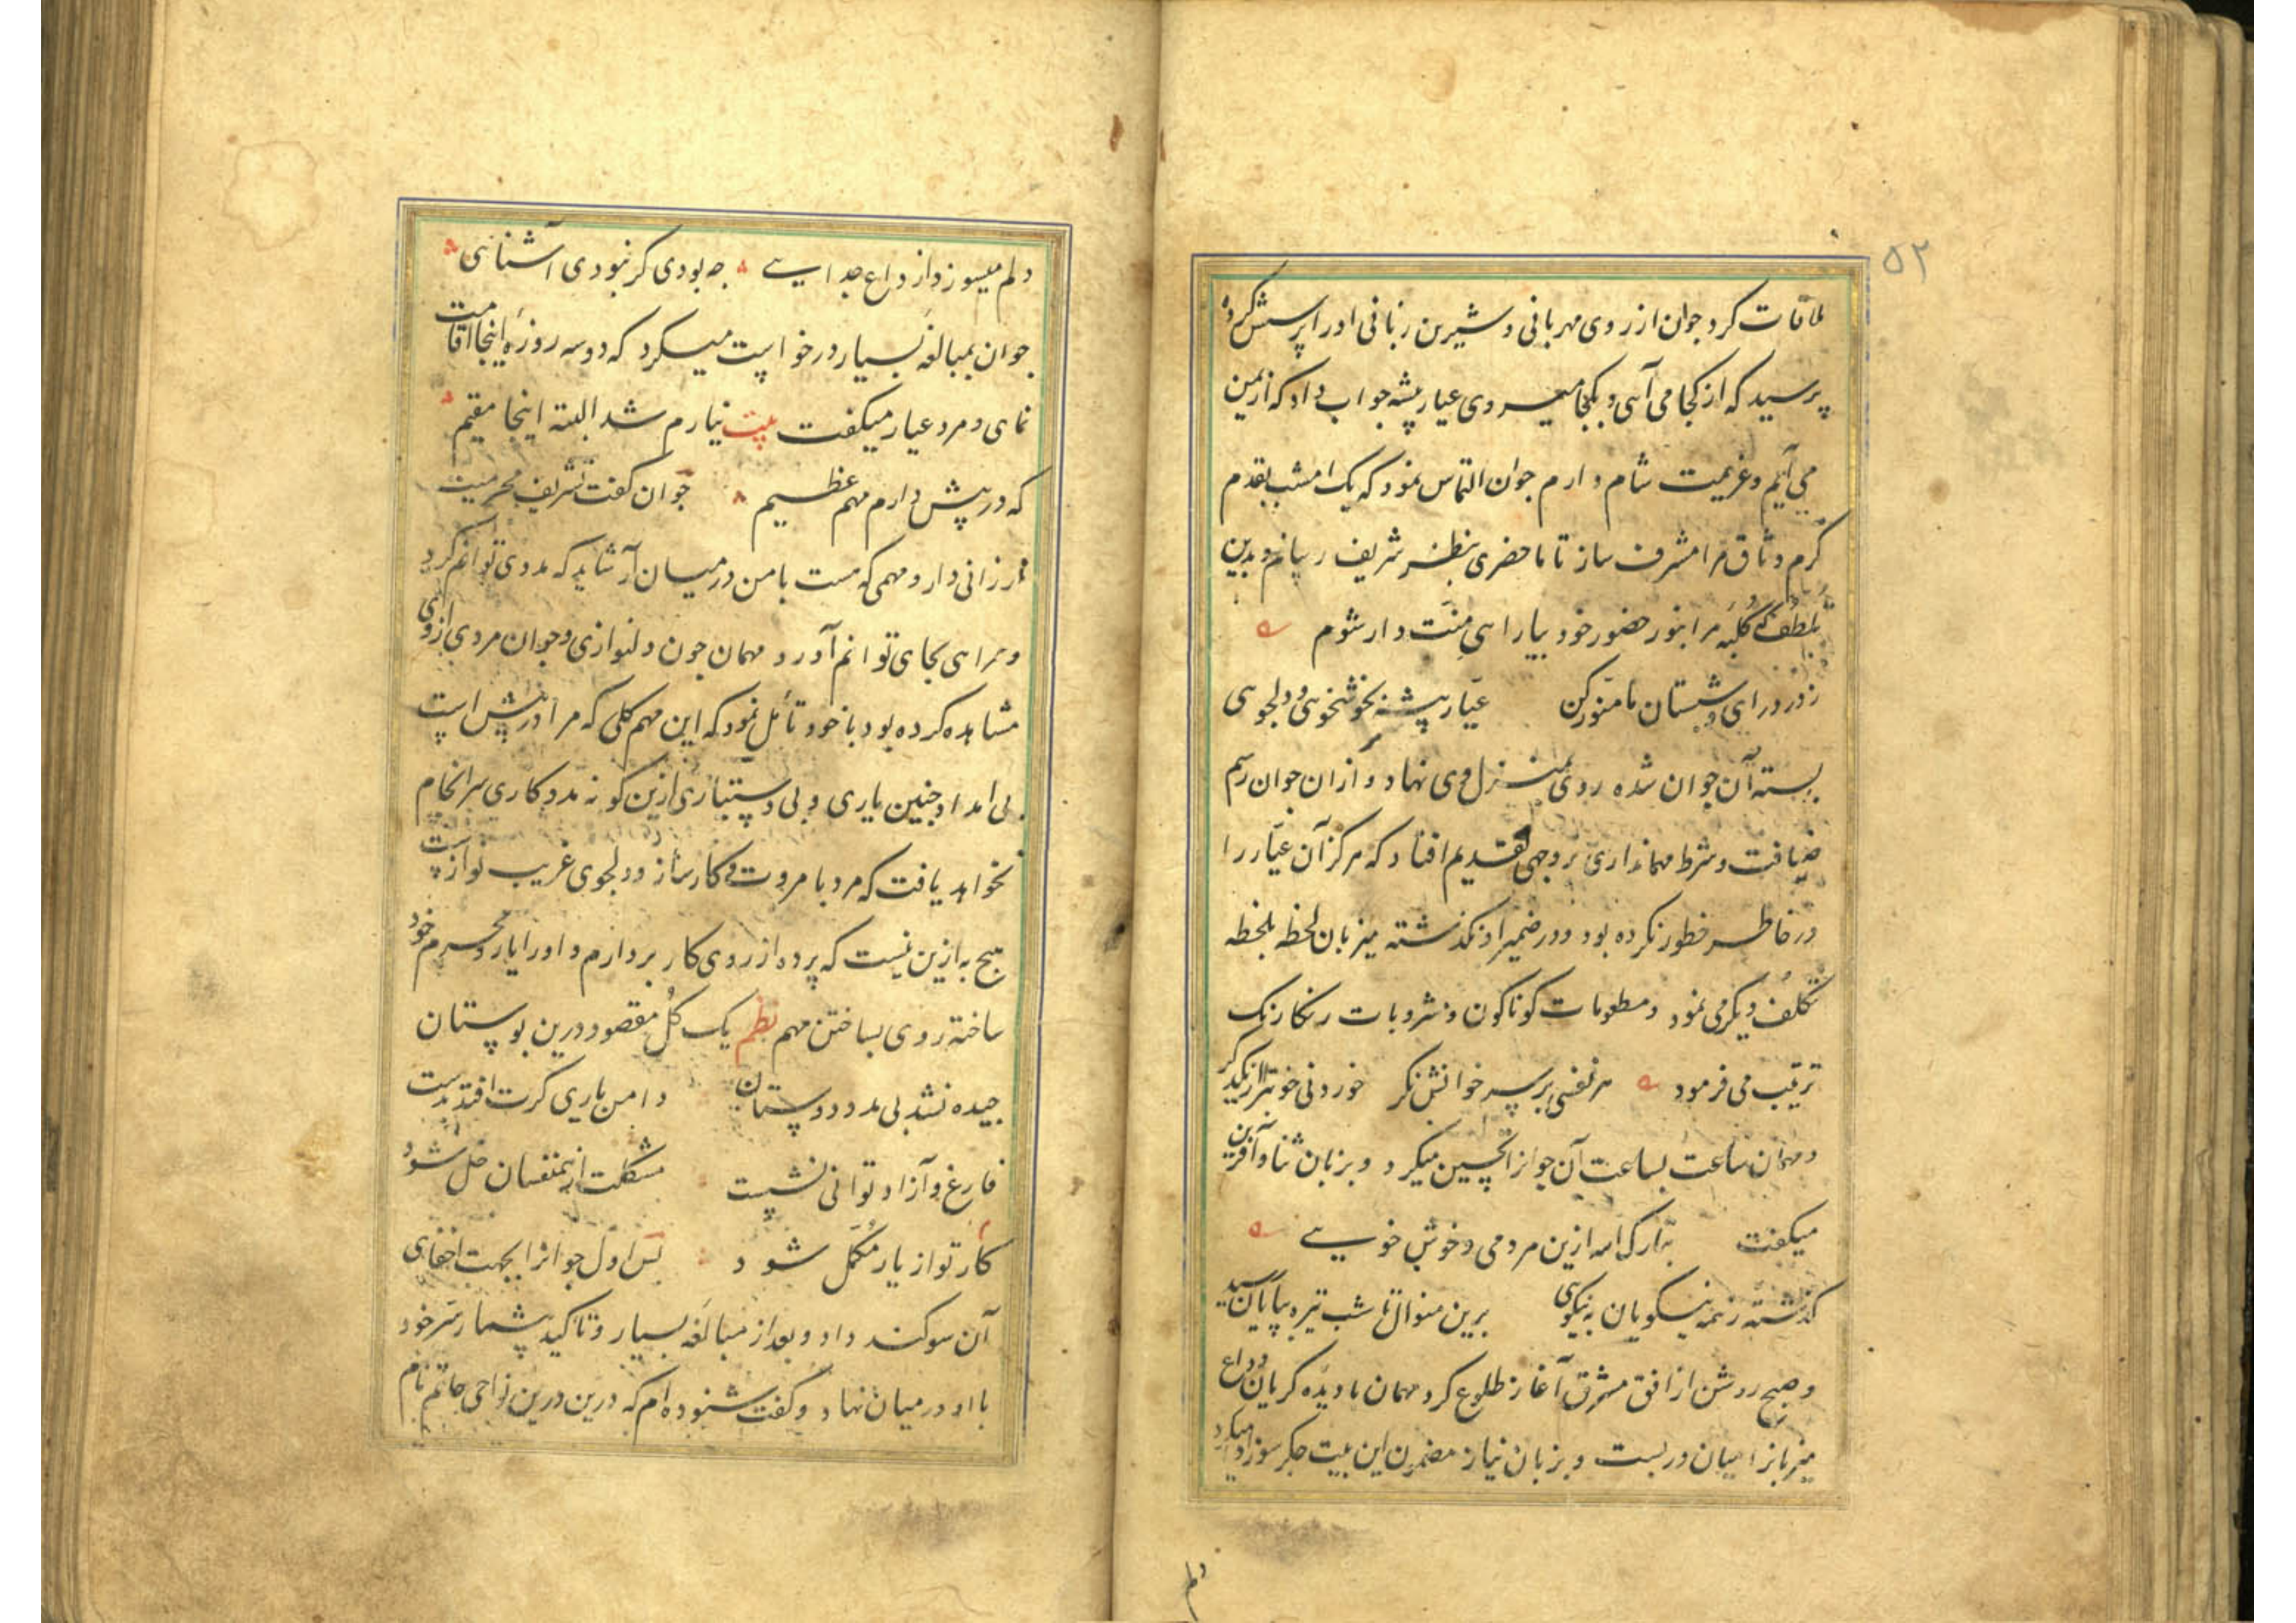 ۵۲
ملاقات کرد جوان از روی مهربانی و شیرین زبانی او را پرسش کرده
پرسید که از کجا می آئی و بکجا میروی عیار پیشه جواب داد که از یمن
می آیم و عزیمت شام دارم جوان التماس نمود که یک امشب بقدم
کرم وثاق مرا مشرف ساز تا ماحضری بنظر شریف رسانم و بدین
لطف که کلبه مرا بنور حضور خود بیارایی منت دار شوم
ز در درای و شبستان ما منور کن عیار پیشه بخوشخوئی و دلجوئی
بسته آن جوان شده روی بمنزل وی نهاد و از ان جوان رسم
ضیافت و شرط مهمانداری بر وجهی تقدیم افتاد که هرکز آن عیار را
در خاطر خطور نکرده بود و در ضمیر او نکذشته میزبان لحظه بلحظه
تکلف دیکر می نمود و مطعومات کوناکون و مشروبات رنکارنک
ترتیب می فرمود هر نفسی بر سر خوانش نکر خوردنی خوشتر از یکدکر
و مهمان ساعت بساعت آن جوانرا تحسین میکرد و بزبان ثنا و آفرین
میکفت تبارک الله ازین مردمی و خوش خویی
کذشته ز همه نیکویان به نیکوی برین منوال تا شب تیره بپایان رسید
و صبح روشن از افق مشرق آغاز طلوع کرد مهمان با دیده کریان وداع
میزبانرا میان دربست و بزبان نیاز مضمون این بیت جکرسوز ادا میکرد
دلم
دلم میسوزد از داغ جدایی چه بودی کر نبودی آشنائی
جوان بمبالغه بسیار درخواست میکرد که دو سه روزه اینجا اقامت
نمای و مرد عیار میکفت بیت نیارم شد البته اینجا مقیم
که در پیش دارم مهم عظیم جوان کفت تشریف محرمیت
ارزانی دار و مهمی که هست با من در میان آر شاید که مددی توانم کرد
و همراهی بجای توانم آورد مهمان چون دلنوازی و جوان مردی از وی
مشاهده کرده بود با خود تأمل نمود که این مهم کلی که مرا در پیش است
بی امداد چنین یاری و بی دستیاری ازین کونه مددکاری سرانجام
نخواهد یافت که مرد با مروت و کارساز و دلجوی غریب نوازست
هیچ به ازین نیست که پرده از روی کار بردارم و او را یار و محرم خود
ساخته روی بساختن مهم نظم یک کل مقصود درین بوستان
چیده نشد بی مدد دوستان دامن یاری کرت افتد بدست
فارغ و آزاد توانی نشست مشکلت از همنفسان حل شود
کار تو از یار مکمل شود پس اول جوانرا بجهت اخفای
آن سوکند داد و بعد از مبالغه بسیار و تاکید بیشمار سر خود
با او در میان نهاد و کفت شنوده ام که درین درین نواحی حاتم نام